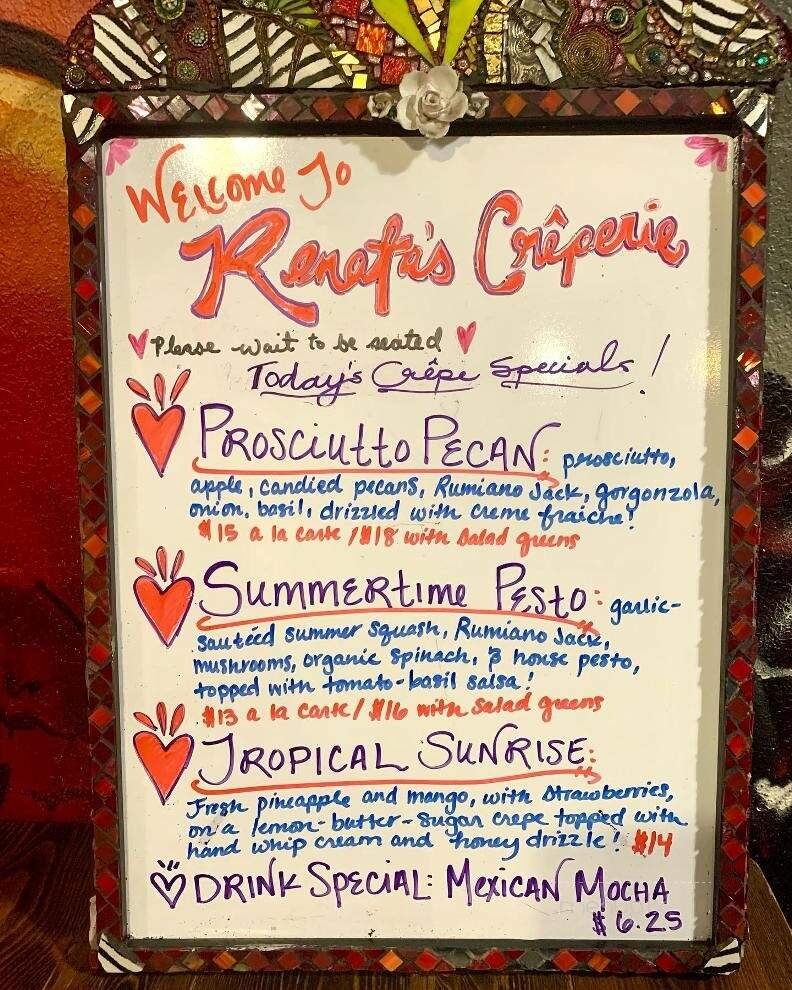 Welcome To
Renata's Crêperie
Please wait to be seated
Today's Crêpe Specials!
Prosciutto Pecan: prosciutto,
apple, candied pecans, Rumiano Jack, gorgonzola,
onion, basil, drizzled with creme fraiche!
$15 a la carte / $18 with salad greens
Summertime Pesto: garlic-
sautéed summer squash, Rumiano Jack,
mushrooms, organic spinach, & house pesto,
topped with tomato-basil salsa!
$13 a la carte / $16 with salad greens
Tropical Sunrise:
Fresh pineapple and mango, with strawberries,
on a lemon-butter-sugar crepe topped with
hand whip cream and honey drizzle! $14
Drink Special: Mexican Mocha
$6.25